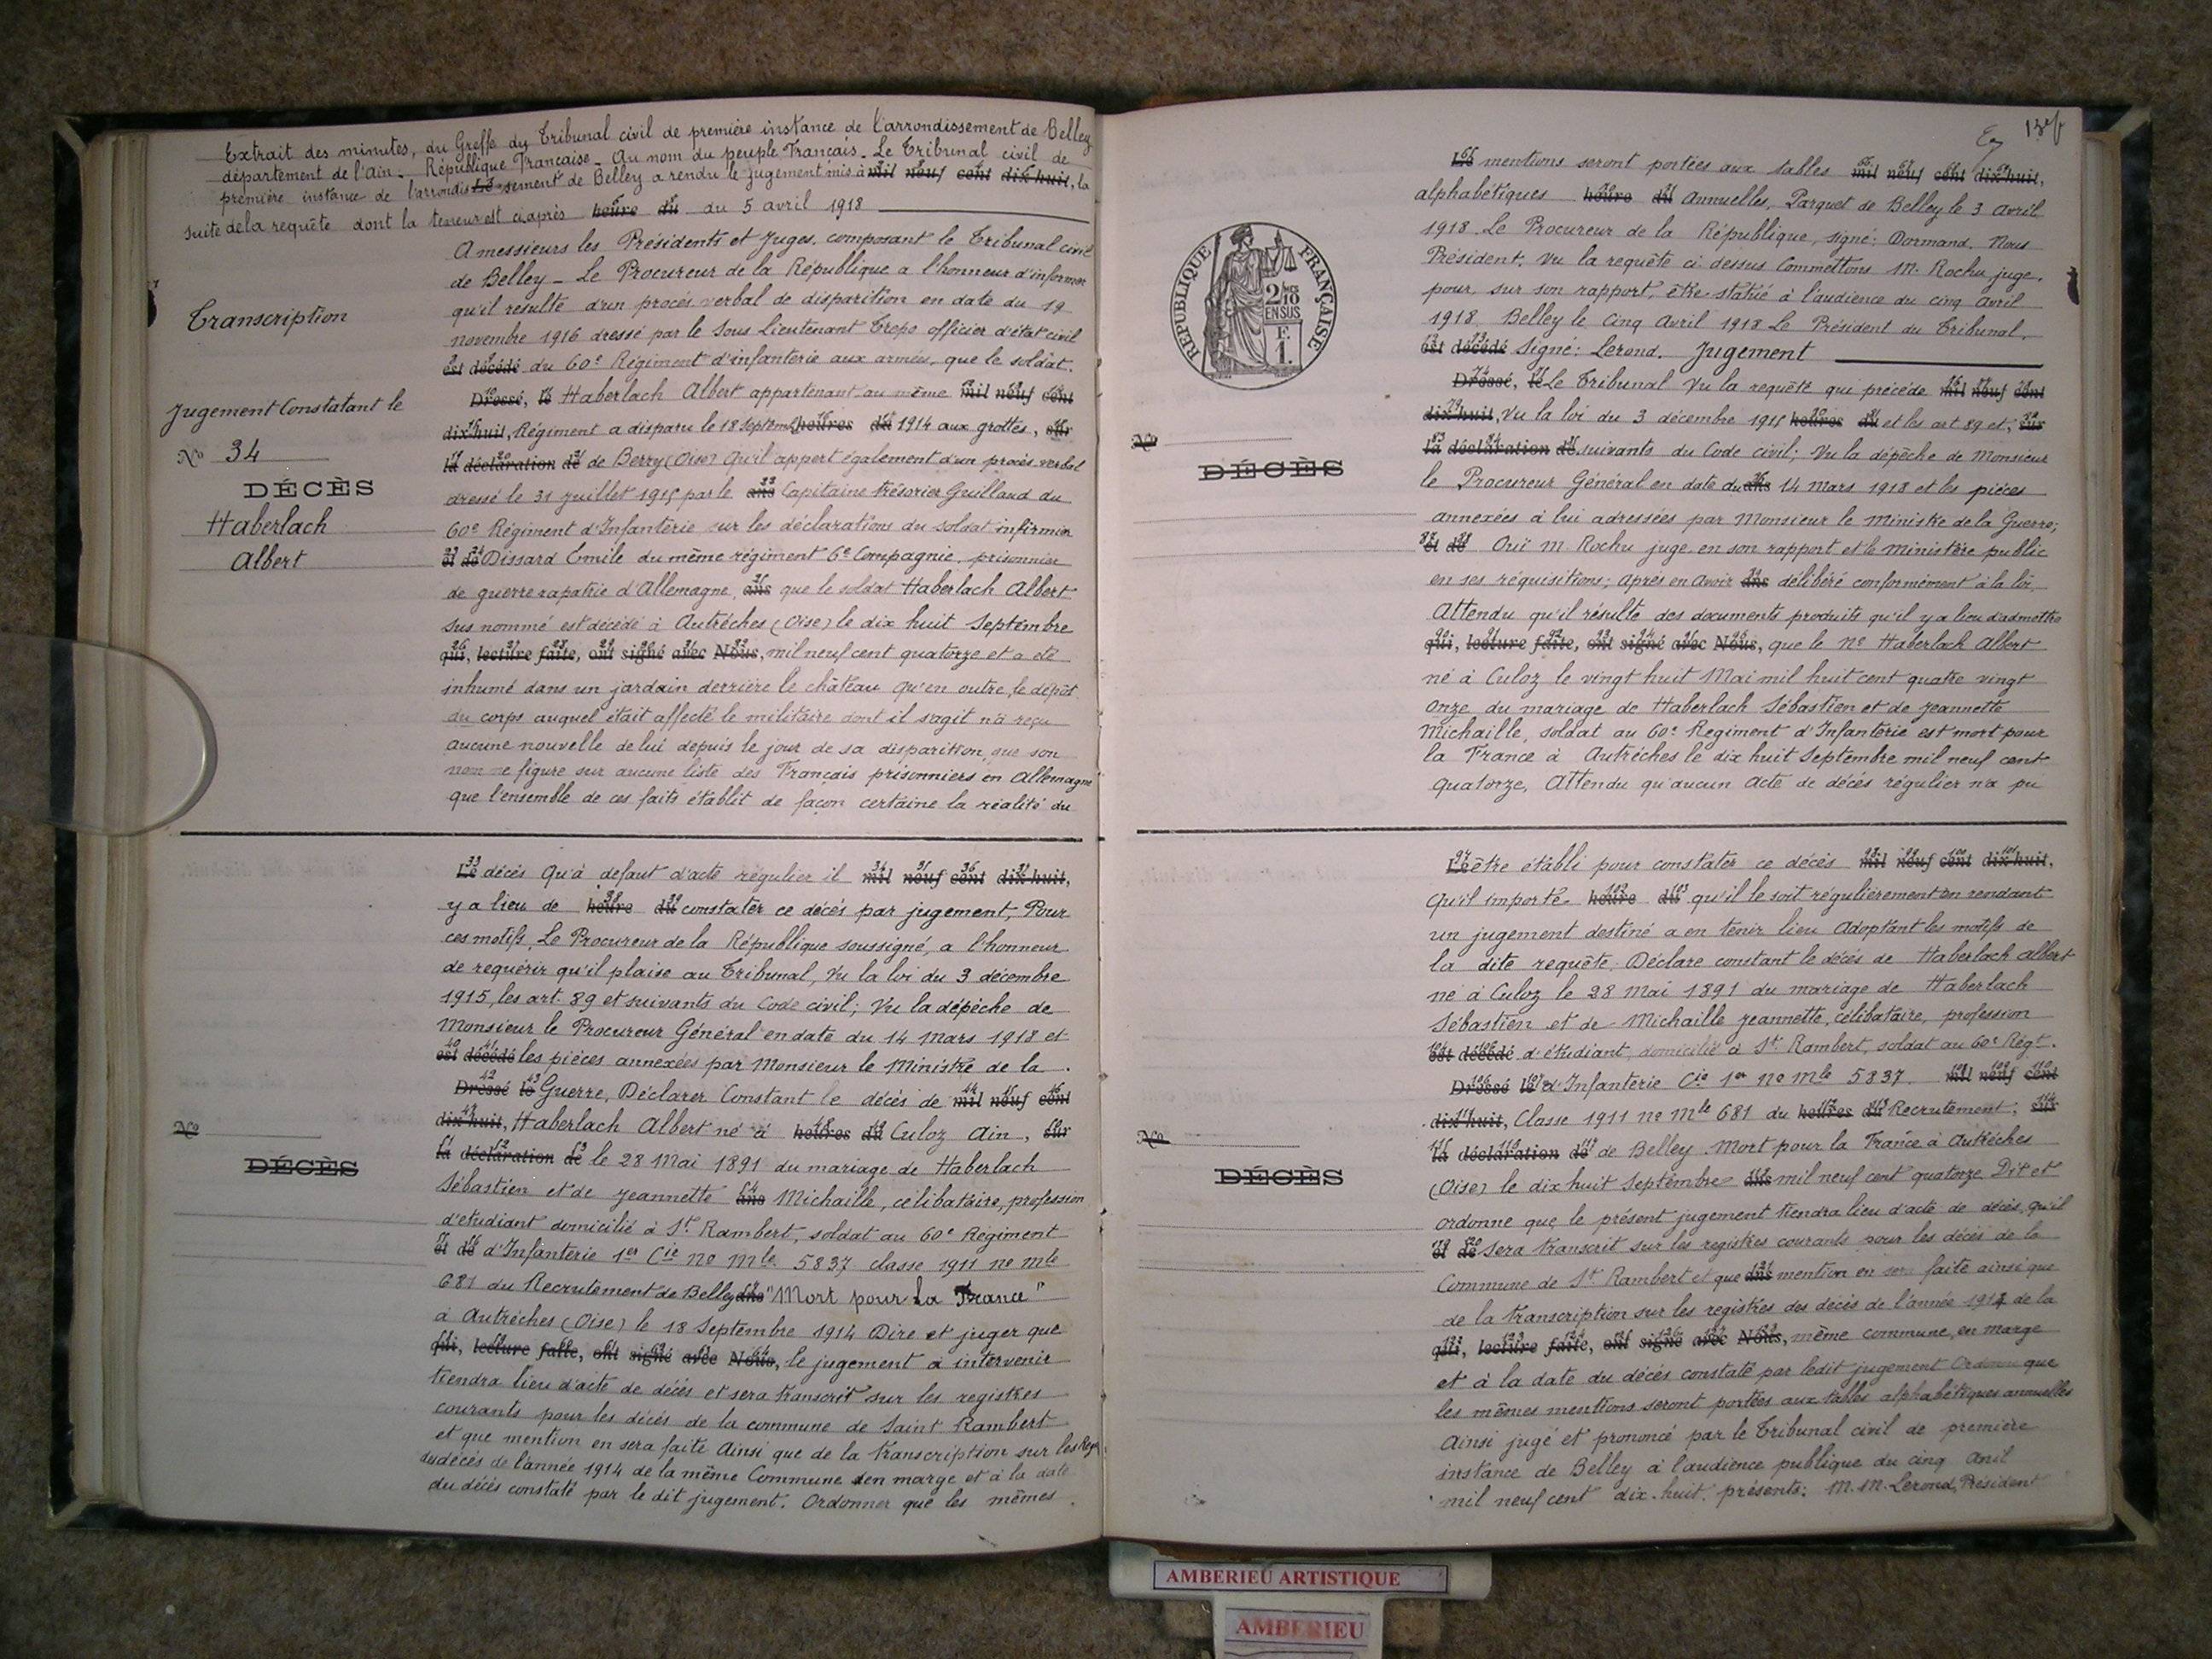 Extrait des minutes, du Greffe du Tribunal civil de première instance de l'arrondissement de Belley
département de l'Ain. République Française - Au nom du peuple Français - Le Tribunal civil de
première instance de l'arrondis Le sement de Belley a rendu le jugement mis à mil neuf cent dix-huit, la
suite de la requête dont la teneur est ci après heure du du 5 avril 1918
Transcription
Jugement Constatant le
No 34
DÉCÈS
Haberlach
Albert
A messieurs les Présidents et Juges, composant le Tribunal civil
de Belley - Le Procureur de la République a l'honneur d'informer
qu'il résulte d'un procès verbal de disparition en date du 19
novembre 1916 dressé par le Sous Lieutenant Crepo officier d'état civil
est décédé du 60e Régiment d'infanterie aux armées, que le soldat.
Dressé, le Haberlach Albert appartenant au même mil neuf cent
dix-huit, Régiment a disparu le 18 Septemb heures du 1914 aux grottes, sur
la déclaration de de Berry (Oise) Qu'il appert également d'un procès verbal
dressé le 31 juillet 1915 par le ans Capitaine trésorier Guilland du
60e Régiment d'Infanterie sur les déclarations du soldat infirmier
et de Dissard Emile du même régiment 6e Compagnie, prisonnier
de guerre rapatrié d'Allemagne, ans que le soldat Haberlach Albert
sus nommé est décédé à Autrêches (Oise) le dix huit Septembre
qui, lecture faite, ont signé avec Nous, mil neuf cent quatorze et a été
inhumé dans un jardain derrière le château Qu'en outre, le dépôt
du corps auquel était affecté le militaire dont il s'agit n'a reçu
aucune nouvelle de lui depuis le jour de sa disparition, que son
nom ne figure sur aucune liste des Français prisonniers en Allemagne
que l'ensemble de ces faits établit de façon certaine la réalité du
Le décès Qu'à défaut d'acte régulier il mil neuf cent dix-huit,
y a lieu de heure du constater ce décès par jugement, Pour
ces motifs, Le Procureur de la République soussigné, a l'honneur
de requérir qu'il plaise au Tribunal, Vu la loi du 3 décembre
1915, les art. 89 et suivants du Code civil; Vu la dépêche de
Monsieur le Procureur Général en date du 14 Mars 1918 et
est décédé les pièces annexées par Monsieur le Ministre de la
Dressé le Guerre, Déclarer Constant le décès de mil neuf cent
dix-huit, Haberlach Albert né à heures du Culoz Ain, sur
la déclaration de le 28 Mai 1891 du mariage de Haberlach
Sébastien et de Jeannette ans Michaille, célibataire, profession
d'étudiant domicilié à St. Rambert, soldat au 60e Régiment
et de d'Infanterie 1er Cie No Mle 5837 classe 1911 no mle
681 du Recrutement de Belley ans "Mort pour la France"
à Autrèches (Oise) le 18 Septembre 1914 Dire et juger que
qui, lecture faite, ont signé avec Nous, le jugement à intervenir
tiendra lieu d'acte de décès et sera transcrit sur les registres
courants pour les décès de la commune de Saint Rambert
et que mention en sera faite ainsi que de la transcription sur les Reg
du décès de l'année 1914 de la même Commune en marge et à la date
du décès constaté par le dit jugement. Ordonner que les mêmes
No
DÉCÈS
RÉPUBLIQUE FRANÇAISE
2/10
EN SUS
Le mentions seront portées aux tables mil neuf cent dix-huit,
alphabétiques heure du Annuelles, Parquet de Belley le 3 avril
1918. Le Procureur de la République, signé: Dormand. Nous
Président, Vu la requête ci dessus Commettons M. Rochu juge,
pour, sur son rapport, être statué à l'audience du cinq Avril
1918. Belley le Cinq Avril 1918 Le Président du Tribunal.
est décédé Signé: Lerond. Jugement
Dressé, le Le Tribunal Vu la requête qui précède mil neuf cent
dix-huit, Vu la loi du 3 décembre 1915 heures du et les art 89 et, sur
la déclaration de suivants du Code civil; Vu la dépêche de Monsieur
le Procureur Général en date du ans 14 Mars 1918 et les pièces
annexées à lui adressées par Monsieur le Ministre de la Guerre;
et de Ouï M. Rochu juge en son rapport et le ministère public
en ses réquisitions; Après en Avoir ans délibéré conformément à la loi,
Attendu qu'il résulte des documents produits qu'il y a lieu d'admettre
qui, lecture faite, ont signé avec Nous, que le Né Haberlach Albert
né à Culoz le vingt huit Mai mil huit cent quatre vingt
onze du mariage de Haberlach Sébastien et de Jeannette
Michaille, soldat au 60e Régiment d'Infanterie est mort pour
la France à Autrèches le dix huit Septembre mil neuf cent
quatorze, Attendu qu'aucun acte de décès régulier n'a pu
No
DÉCÈS
Le être établi pour constater ce décès mil neuf cent dix-huit,
Qu'il importe heure du qu'il le soit régulièrement en rendant
un jugement destiné a en tenir lieu Adoptant les motifs de
la dite requête, Déclare constant le décès de Haberlach Albert
né à Culoz le 28 Mai 1891 du mariage de Haberlach
Sébastien et de Michaille Jeannette, célibataire, profession
est décédé d'étudiant, domicilié à St. Rambert, soldat au 60e Régt.
Dressé le d'Infanterie Cie 1er no Mle 5837. mil neuf cent
dix-huit, Classe 1911 no Mle 681 du heures du Recrutement; sur
la déclaration de de Belley. Mort pour la France à Autrèches
(Oise) le dix huit Septembre ans mil neuf cent quatorze. Dit et
ordonne que le présent jugement tiendra lieu d'acte de décès, qu'il
et de Sera transcrit sur les registres courants pour les décès de la
Commune de St. Rambert et que ans mention en sera faite ainsi que
de la transcription sur les registres des décès de l'année 1914 de la
qui, lecture faite, ont signé avec Nous, même commune, en marge
et à la date du décès constaté par ledit jugement Ordonne que
les mêmes mentions seront portées aux tables alphabétiques annuelles
Ainsi jugé et prononcé par le Tribunal civil de première
instance de Belley à l'audience publique du cinq Avril
mil neuf cent dix-huit, présents: M. M. Lerond, Président
No
DÉCÈS
AMBERIEU ARTISTIQUE
AMBERIEU